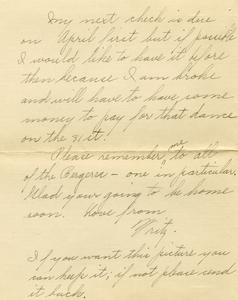 My next check is due
on April first but if possible
I would like to have it before
then because I am broke
and will have to have some
money to pay for that dance
on the 31st!
Please remember me to all
of the Bergeres - one in particular.
Glad your going to be home
soon. Love from
Fritz.
If you want this picture you
can keep it; if not please send
it back.